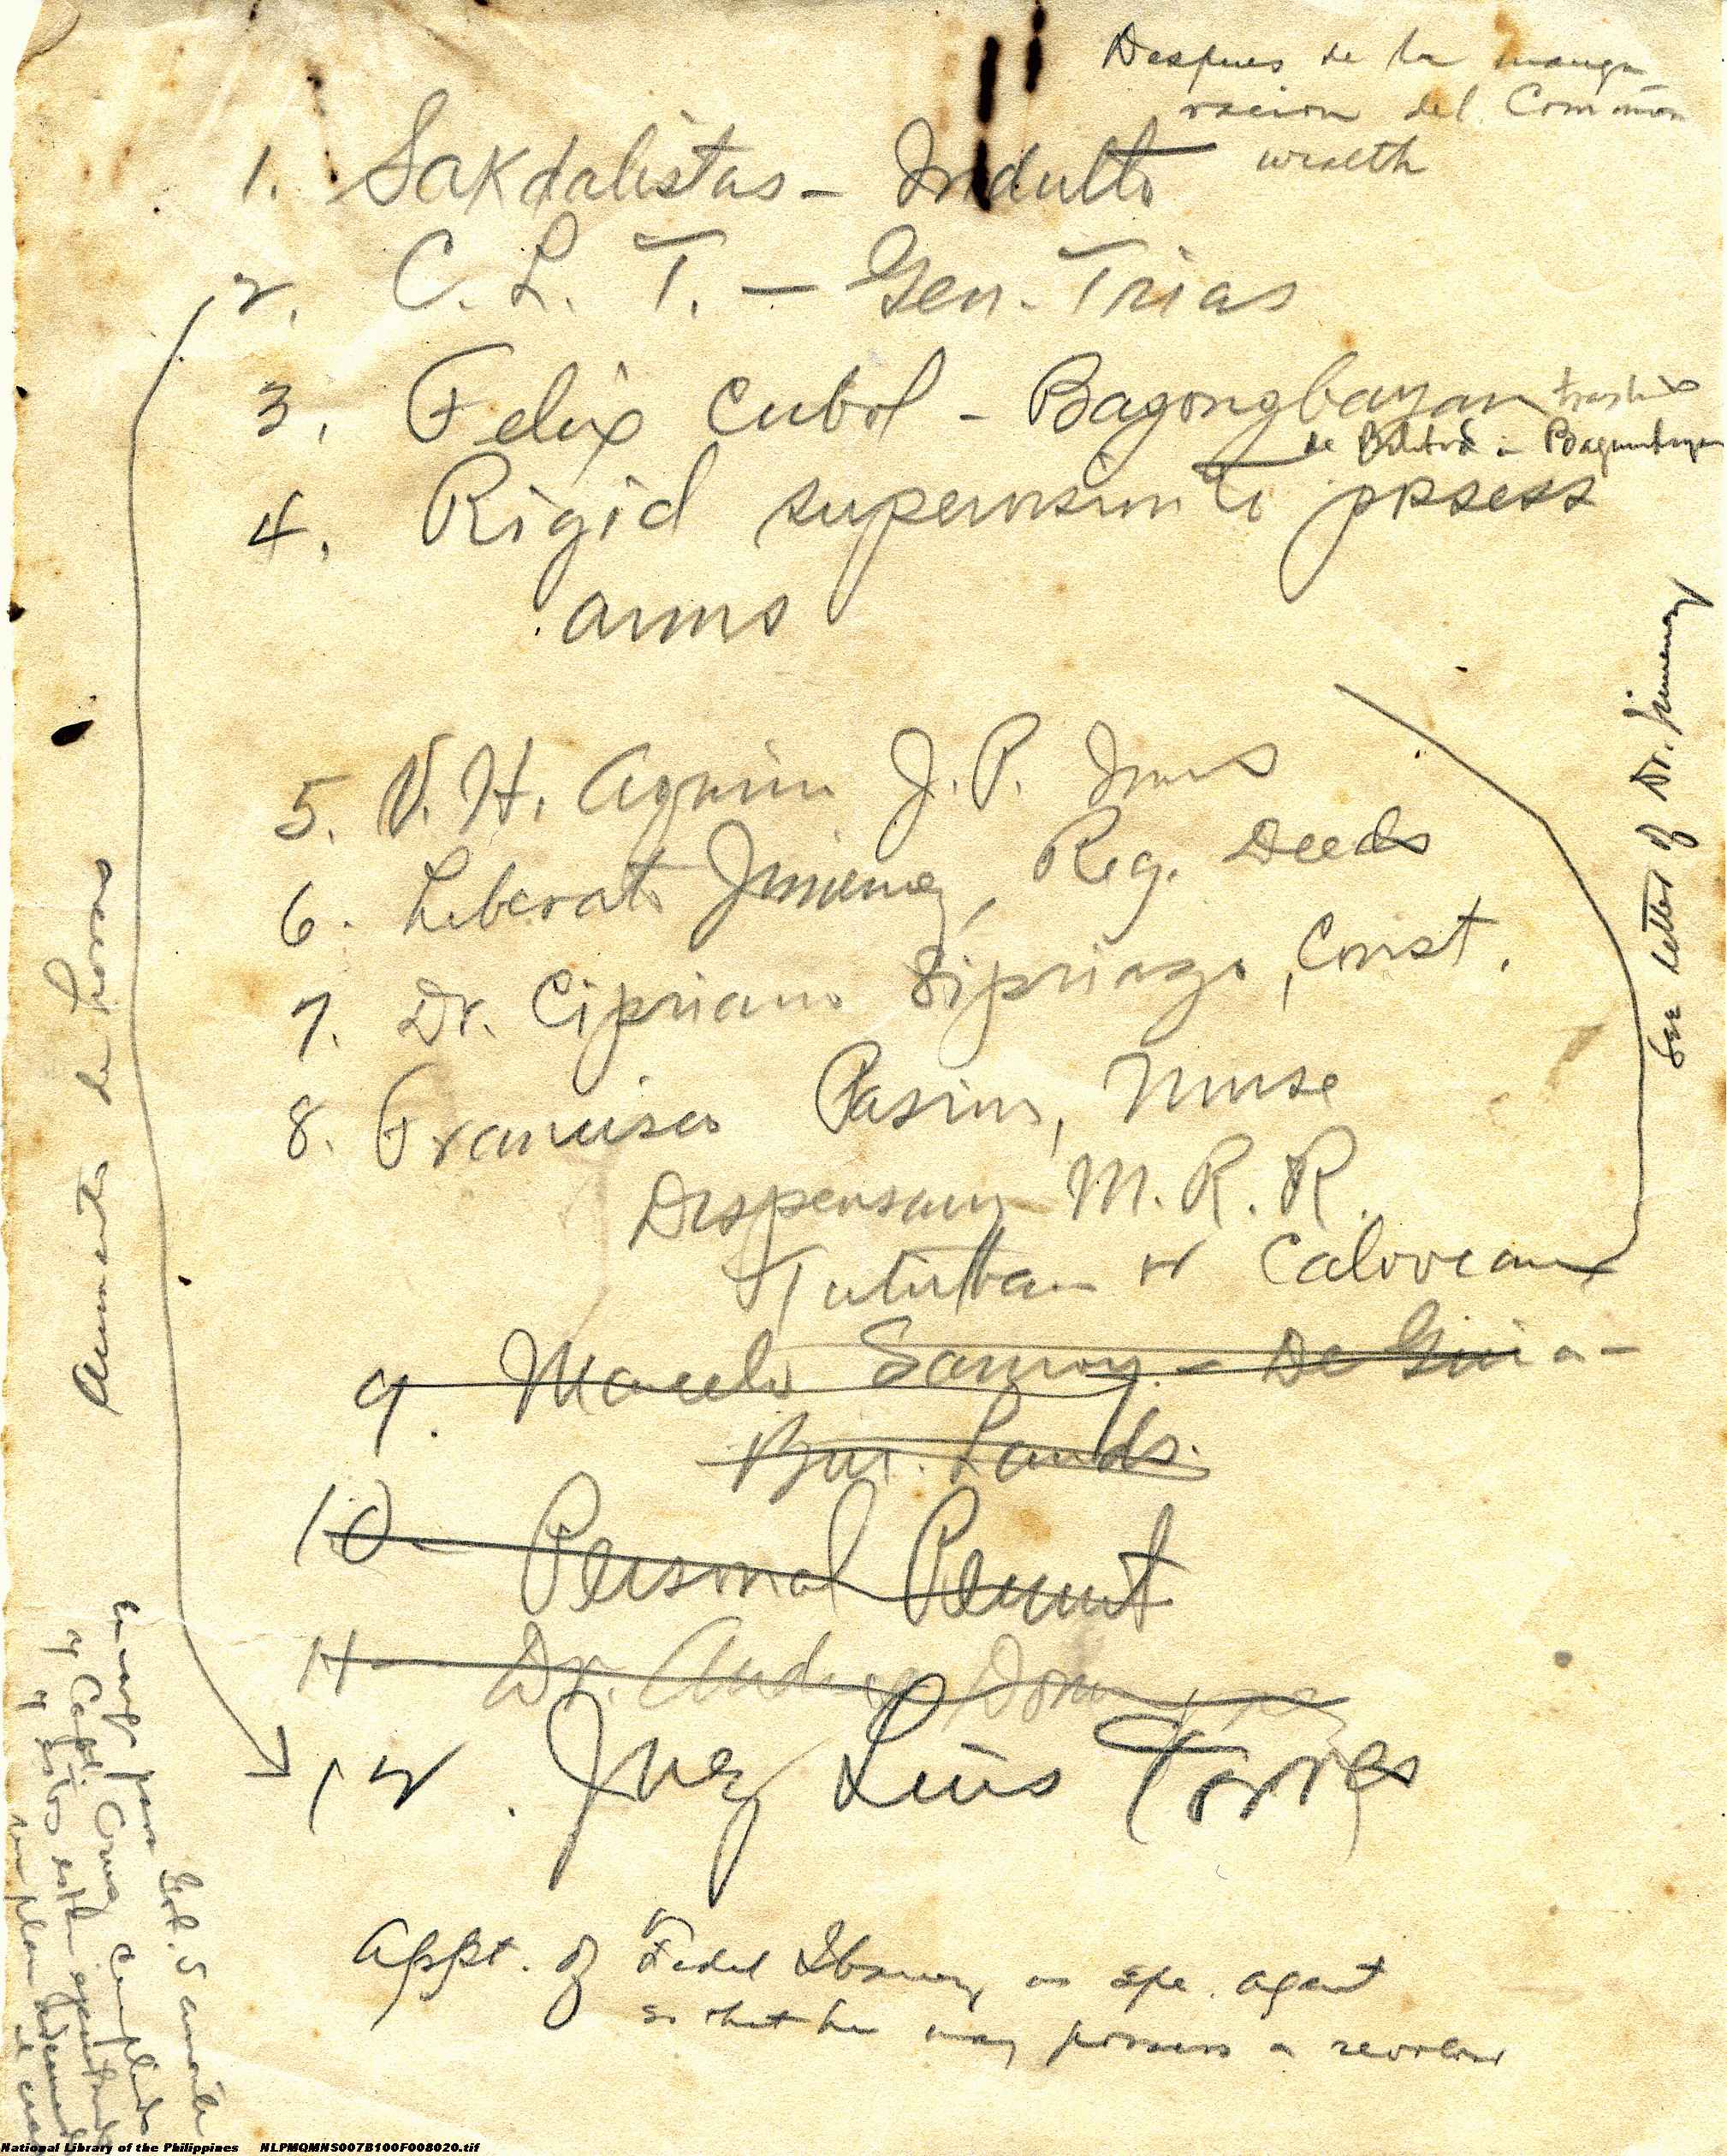 Despues de la inaugu
racion del Common
wealth
1. Sakdalistas - Indulto
2. C. L. T. - Gen. Trias
3. Felix Cubol - Bagongbayan traslado
de Bilibid a Bagumbayan
4. Rigid supervision to possess
arms
5. V. H. Aguin J. P. Imus
6. Liberato Jimenez, Reg. Deeds
7. Dr. Cipriano Sipriazo, Const.
8. Francisco Pasion, Nurse
Dispensary M. R. R.
Tutuban or Caloocan
See letter of Dr. Jimenez
9. Marcelo Samoy - De Guia -
Bur. Lands.
10 Personal Permit
11 Dr. Andres Dominguez
12. Juez Luis Torres
Aumento de horas
Appt. of Fidel Ibanez as spe. agent
so that he may possess a revolver
Gob. S
para
y Capt. Cruz
y estos estan
un plan
National Library of the Philippines NLPMQMNS007B100F008020.tif